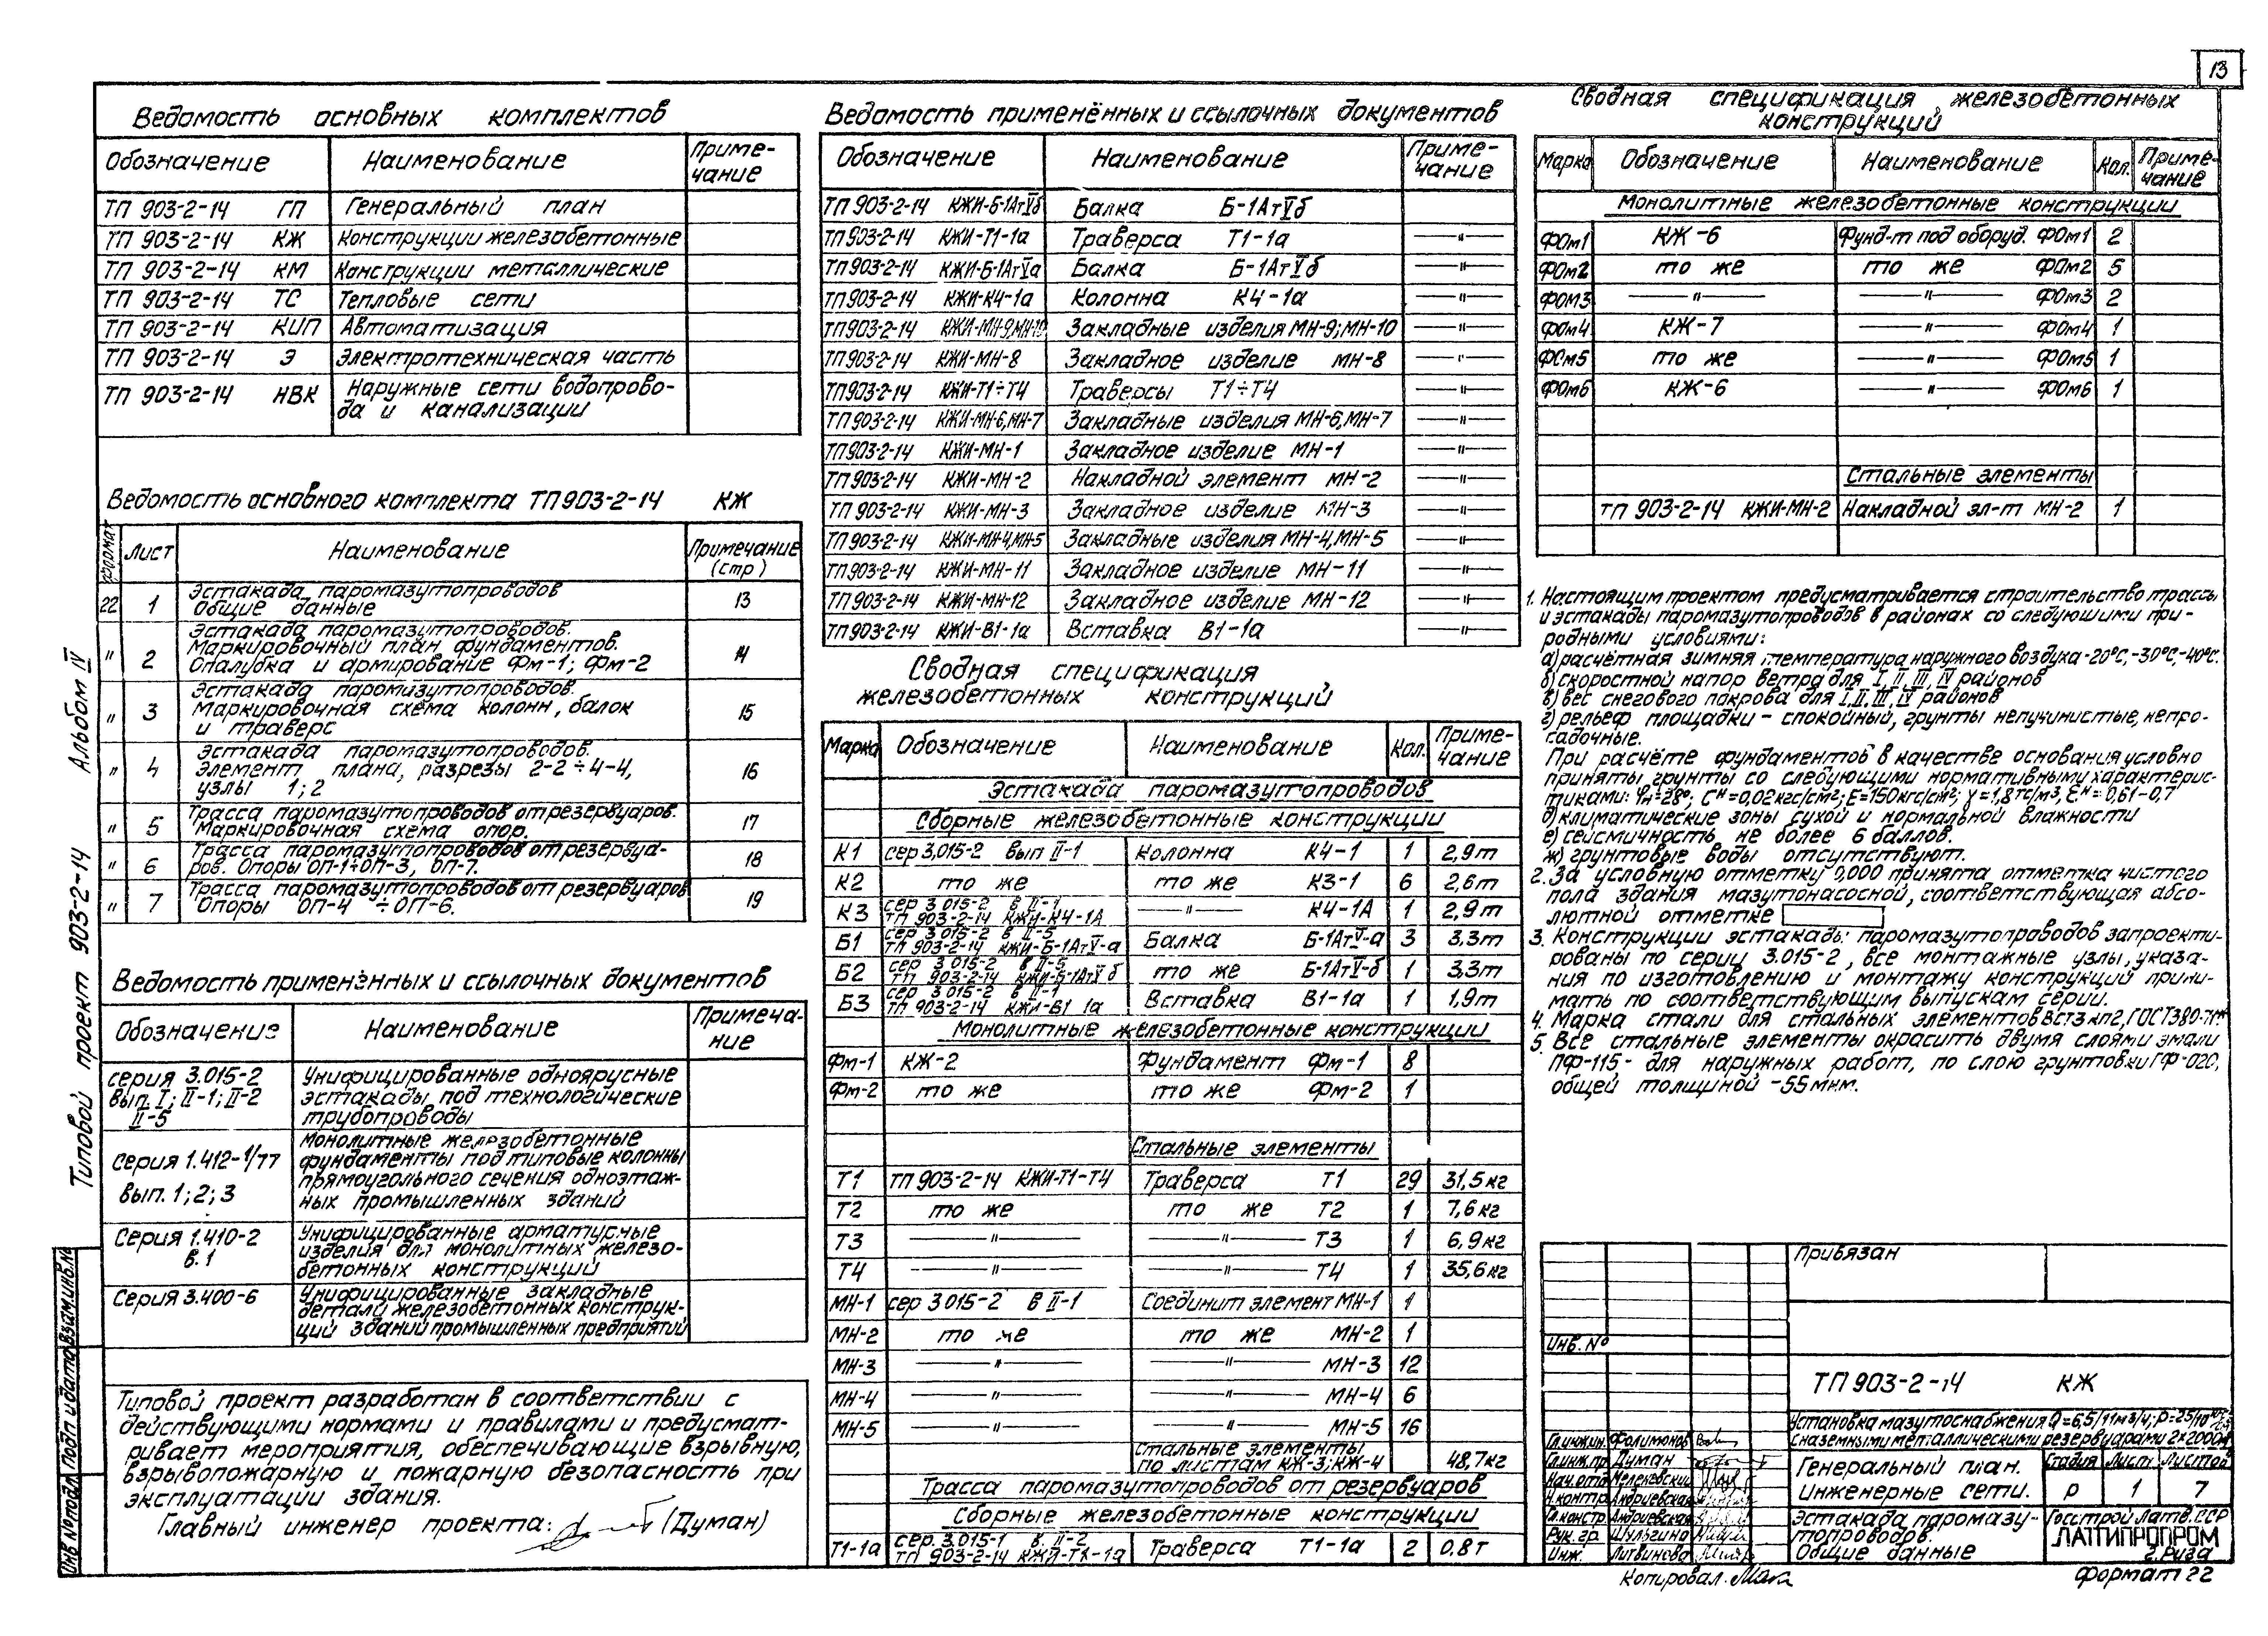 13
Ведомость основных комплектов
Обозначение Наименование Примечание
ТП 903-2-14 ГП Генеральный план
ТП 903-2-14 КЖ Конструкции железобетонные
ТП 903-2-14 КМ Конструкции металлические
ТП 903-2-14 ТС Тепловые сети
ТП 903-2-14 КИП Автоматизация
ТП 903-2-14 Э Электротехническая часть
ТП 903-2-14 НВК Наружные сети водопрово-
да и канализации
Ведомость основного комплекта ТП 903-2-14 КЖ
Формат Лист Наименование Примечание (стр)
22 1 Эстакада паромазутопроводов
Общие данные 13
" 2 Эстакада паромазутопроводов.
Маркировочный план фундаментов.
Опалубка и армирование Фм-1; Фм-2 14
" 3 Эстакада паромазутопроводов.
Маркировочная схема колонн, балок
и траверс 15
" 4 Эстакада паромазутопроводов.
Элемент плана, разрезы 2-2÷4-4,
узлы 1; 2 16
" 5 Трасса паромазутопроводов от резервуаров.
Маркировочная схема опор. 17
" 6 Трасса паромазутопроводов от резервуа-
ров. Опоры ОП-1÷ОП-3, ОП-7. 18
" 7 Трасса паромазутопроводов от резервуаров
Опоры ОП-4 ÷ ОП-6. 19
Ведомость применённых и ссылочных документов
Обозначение Наименование Примеча-
ние
серия 3.015-2 Унифицированные одноярусные
вып. I; II-1; II-2 эстакады под технологические
II-5 трубопроводы
Монолитные железобетонные
Серия 1.412-1/77 фундаменты под типовые колонны
прямоугольного сечения одноэтаж-
вып. 1; 2; 3 ных промышленных зданий
Серия 1.410-2 Унифицированные арматурные
в. 1 изделия для монолитных железо-
бетонных конструкций
Серия 3.400-6 Унифицированные закладные
детали железобетонных конструк-
ций зданий промышленных предприятий
Типовой проект разработан в соответствии с
действующими нормами и правилами и предусмат-
ривает мероприятия, обеспечивающие взрывную,
взрывопожарную и пожарную безопасность при
эксплуатации здания.
Главный инженер проекта: (Думан)
Типовой проект 903-2-14 Альбом IV
Инв № подл. Подп и дата Взам.инв.№
Ведомость применённых и ссылочных документов
Обозначение Наименование Приме-
чание
ТП 903-2-14 КЖИ-Б-1АтVб Балка Б-1АтVб
ТП903-2-14 КЖИ-Т1-1а Траверса Т1-1а "
ТП903-2-14 КЖИ-Б-1АтVа Балка Б-1АтVб "
ТП903-2-14 КЖИ-К4-1а Колонна К4-1а "
ТП903-2-14 КЖИ-МН-9,МН-10 Закладные изделия МН-9; МН-10 "
ТП903-2-14 КЖИ-МН-8 Закладное изделие МН-8 "
ТП903-2-14 КЖИ-Т1÷Т4 Траверсы Т1÷Т4 "
ТП903-2-14 КЖИ-МН-6,МН-7 Закладные изделия МН-6, МН-7 "
ТП903-2-14 КЖИ-МН-1 Закладное изделие МН-1 "
ТП903-2-14 КЖИ-МН-2 Накладной элемент МН-2 "
ТП 903-2-14 КЖИ-МН-3 Закладное изделие МН-3 "
ТП903-2-14 КЖИ-МН-4,МН-5 Закладные изделия МН-4, МН-5 "
ТП903-2-14 КЖИ-МН-11 Закладное изделие МН-11 "
ТП 903-2-14 КЖИ-МН-12 Закладное изделие МН-12 "
ТП 903-2-14 КЖИ-В1-1а Вставка В1-1а "
Сводная спецификация
железобетонных конструкций
Марка Обозначение Наименование Кол. Приме-
чание
Эстакада паромазутопроводов
Сборные железобетонные конструкции
К1 сер 3.015-2 вып II-1 Колонна К4-1 1 2,9т
К2 то же то же К3-1 6 2,6т
К3 сер 3 015-2 в II-1
ТП 903-2-14 КЖИ-К4-1А " К4-1А 1 2,9т
Б1 сер 3 015-2 в II-5
ТП 903-2-14 КЖИ-Б-1АтV-а Балка Б-1АтV-а 3 3,3т
Б2 сер 3 015-2 в II-5
ТП 903-2-14 КЖИ-Б-1АтVб то же Б-1АтV-б 1 3,3т
Б3 сер 3 015-2 в II-1
ТП 903-2-14 КЖИ-В1 1а Вставка В1-1а 1 1,9т
Монолитные железобетонные конструкции
Фм-1 КЖ-2 Фундамент Фм-1 8
Фм-2 то же то же Фм-2 1
Стальные элементы
Т1 ТП 903-2-14 КЖИ-Т1-Т4 Траверса Т1 29 31,5кг
Т2 то же то же Т2 1 7,6кг
Т3 " " Т3 1 6,9кг
Т4 " " Т4 1 35,6кг
МН-1 сер 3 015-2 в II-1 Соединит элемент МН-1 1
МН-2 то же то же МН-2 1
МН-3 " " МН-3 12
МН-4 " " МН-4 6
МН-5 " " МН-5 16
Стальные элементы
по листам КЖ-3; КЖ-4 48,7кг
Трасса паромазутопроводов от резервуаров
Сборные железобетонные конструкции
Т1-1а сер. 3.015-1 в. II-2
ТП 903-2-14 КЖИ-Т1-1а Траверса Т1-1а 2 0.8т
Сводная спецификация железобетонных
конструкций
Марка Обозначение Наименование Кол. Приме-
чание
Монолитные железобетонные конструкции
ФОм1 КЖ-6 Фунд-т под оборуд. ФОм1 2
ФОм2 то же то же ФОм2 5
ФОм3 " " ФОм3 2
ФОм4 КЖ-7 " ФОм4 1
ФОм5 то же " ФОм5 1
ФОм6 КЖ-6 " ФОм6 1
Стальные элементы
ТП 903-2-14 КЖИ-МН-2 Накладной эл-т МН-2 1
1. Настоящим проектом предусматривается строительство трассы
и эстакады паромазутопроводов в районах со следующими при-
родными условиями:
а) расчётная зимняя температура наружного воздуха -20°С, -30°С, -40°С.
б) скоростной напор ветра для I, II, III, IV районов
в) вес снегового покрова для I, II, III, IV районов
г) рельеф площадки - спокойный, грунты непучинистые, непро-
садочные.
При расчёте фундаментов в качестве основания условно
приняты грунты со следующими нормативными характерис-
тиками: φн=28°; Cн=0,02кгс/см²; Е=150кгс/см²; γ=1,8тс/м³, Ɛн=0,61-0,7
д) климатические зоны сухой и нормальной влажности
е) сейсмичность не более 6 баллов.
ж) грунтовые воды отсутствуют.
2. За условную отметку 0,000 принята отметка чистого
пола здания мазутонасосной, соответствующая абсо-
лютной отметке
3. Конструкции эстакады паромазутопроводов запроекти-
рованы по серии 3.015-2, все монтажные узлы, указа-
ния по изготовлению и монтажу конструкций прини-
мать по соответствующим выпускам серии.
4. Марка стали для стальных элементов ВСт3 кп2, ГОСТ 380-71*
5. Все стальные элементы окрасить двумя слоями эмали
ПФ-115- для наружных работ, по слою грунтовки ГФ-020,
общей толщиной -55 мкм.
Привязан
Инв. №
ТП 903-2-14 КЖ
Установка мазутоснабжения Q=6,5/11м3/ч; Р=25/10
с наземными металлическими резервуарами 2×2000м
Гл.инж.ин. Филимонов
Гл.инж.пр Думан
Нач.отд
Н.контр. Андриевская
Гл.констр. Андриевская
Рук. гр. Шульгина
Инж. Литвинова
Генеральный план.
Инженерные сети.
Стадия Лист Листов
Р 1 7
Эстакада паромазу-
топроводов.
Общие данные
Госстрой Латв.ССР
ЛАТГИПРОПРОМ
г. Рига
Копировал.
Формат 22